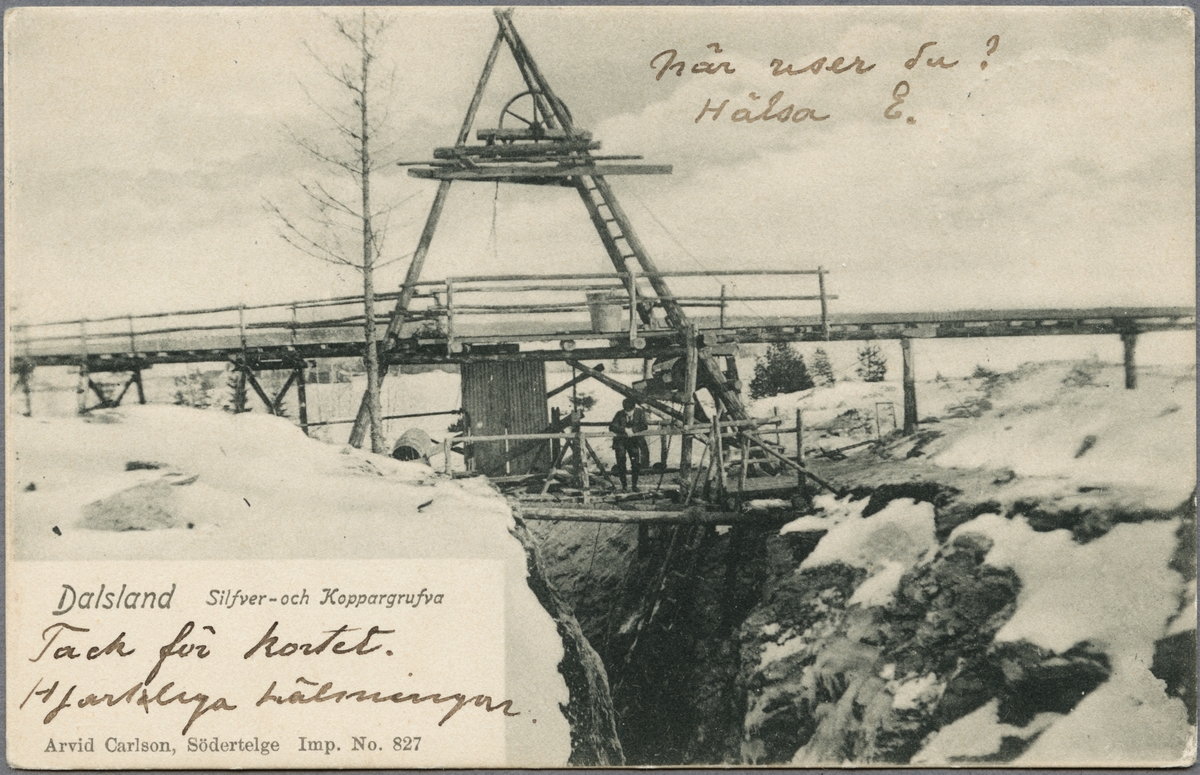 När reser du?
Hälsa E.
Dalsland Silfver-och Koppargrufva
Tack för kortet.
Hjärtliga hälsningar.
Arvid Carlson, Södertelge Imp. No. 827